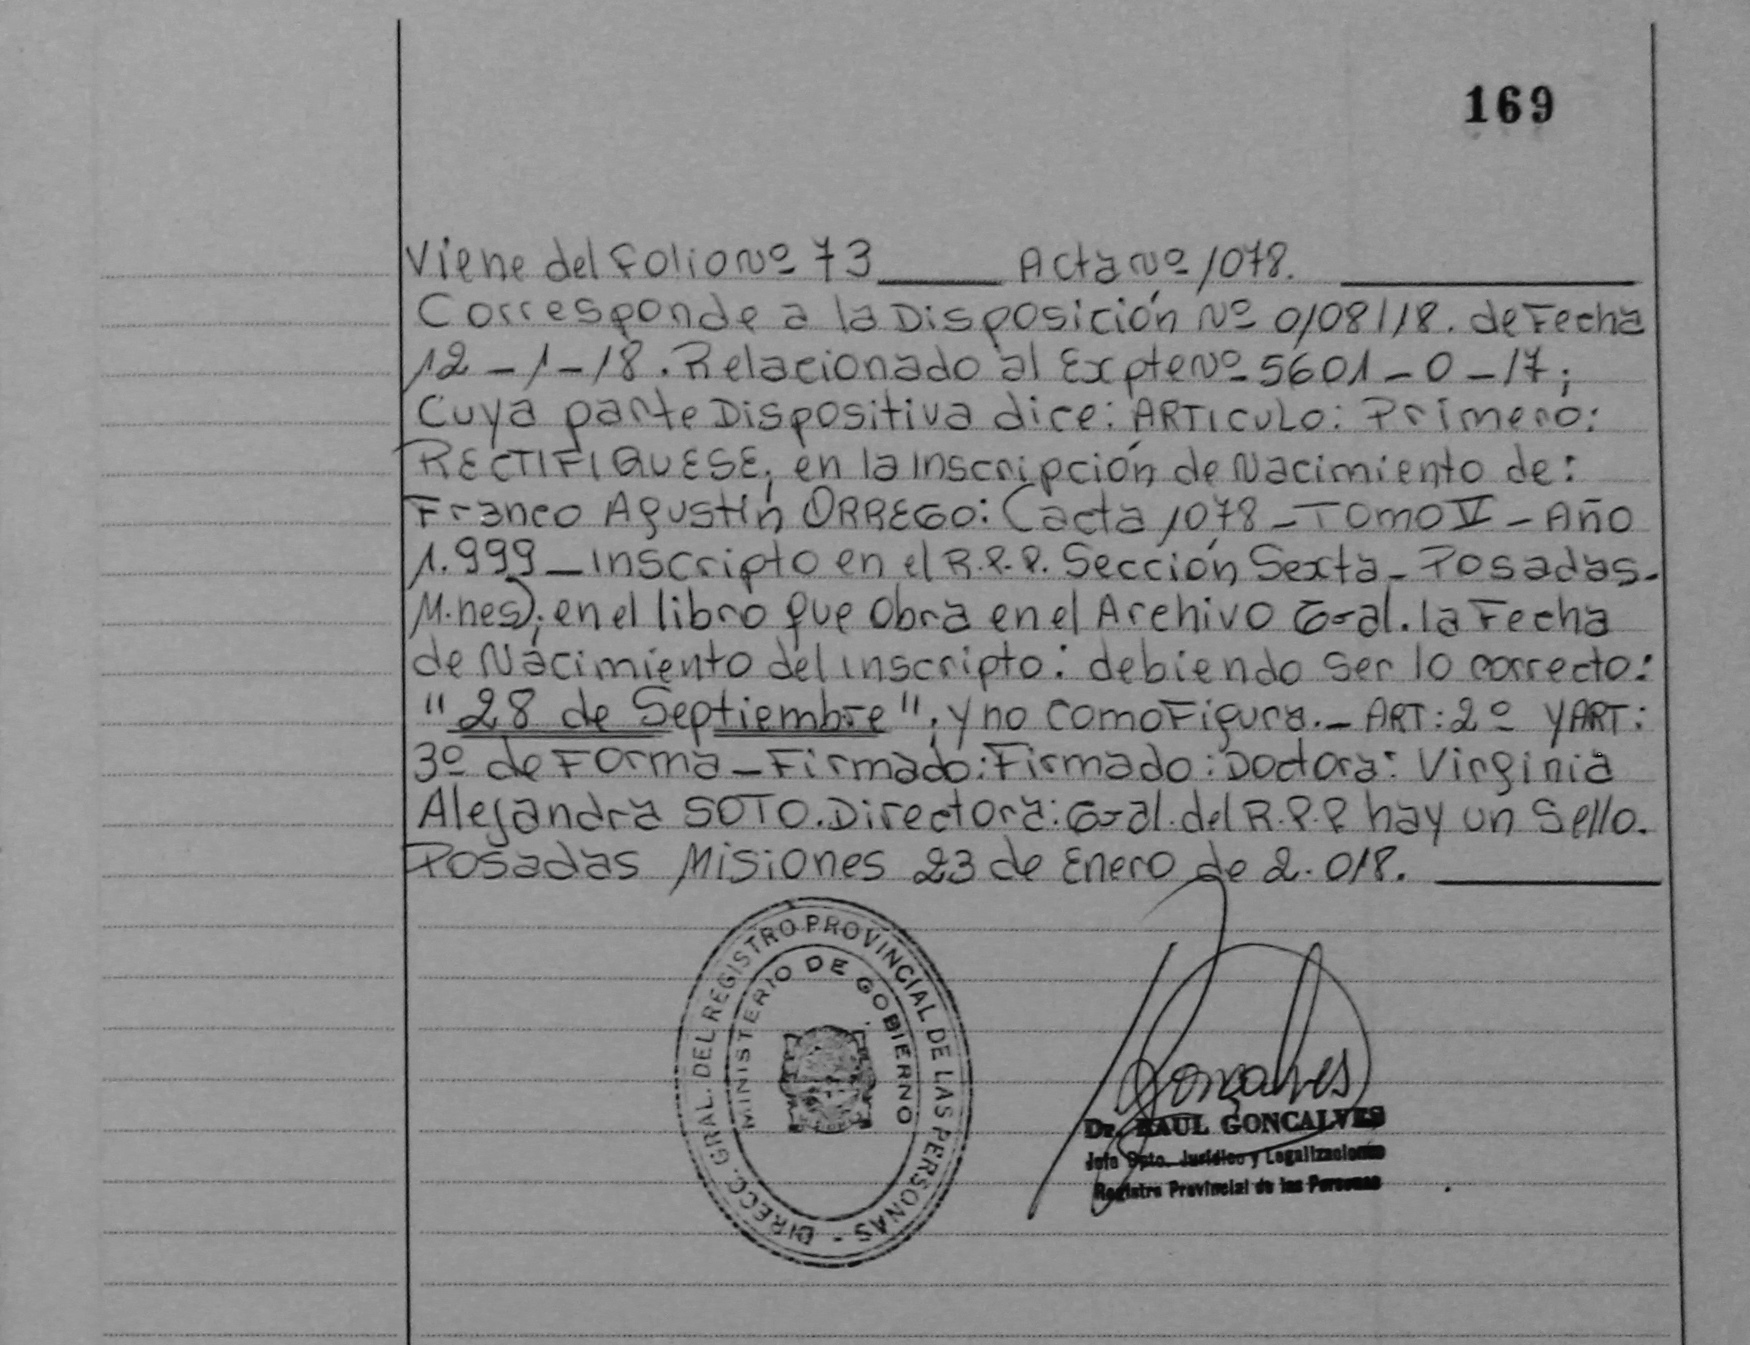 169
Viene del Folio Nº 73 ____ Acta Nº 1078. ____
Corresponde a la Disposición Nº 0108/18. de Fecha
12-1-18. Relacionado al Expte Nº 5601-0-17;
Cuya parte Dispositiva dice: ARTICULO: Primero:
RECTIFIQUESE; en la Inscripción de Nacimiento de:
Franco Agustín ORREGO: (acta 1078-TOMO V-Año
1.999-Inscripto en el R.P.P. Sección Sexta-Posadas-
M.nes); en el libro que Obra en el Archivo Gral. la Fecha
de Nacimiento del inscripto: debiendo ser lo correcto:
"28 de Septiembre"; y no como Figura.- ART: 2º Y ART:
3º de Forma-Firmado: Firmado: Doctora: Virginia
Alejandra SOTO. Directora: Gral. del R.P.P hay un Sello.
Posadas Misiones 23 de Enero de 2.018. ____
DIRECC. GRAL. DEL REGISTRO PROVINCIAL DE LAS PERSONAS -
MINISTERIO DE GOBIERNO
Gonçalves
Dr. RAUL GONCALVES
Jefe Dpto. Jurídico y Legalizaciones
Registro Provincial de las Personas